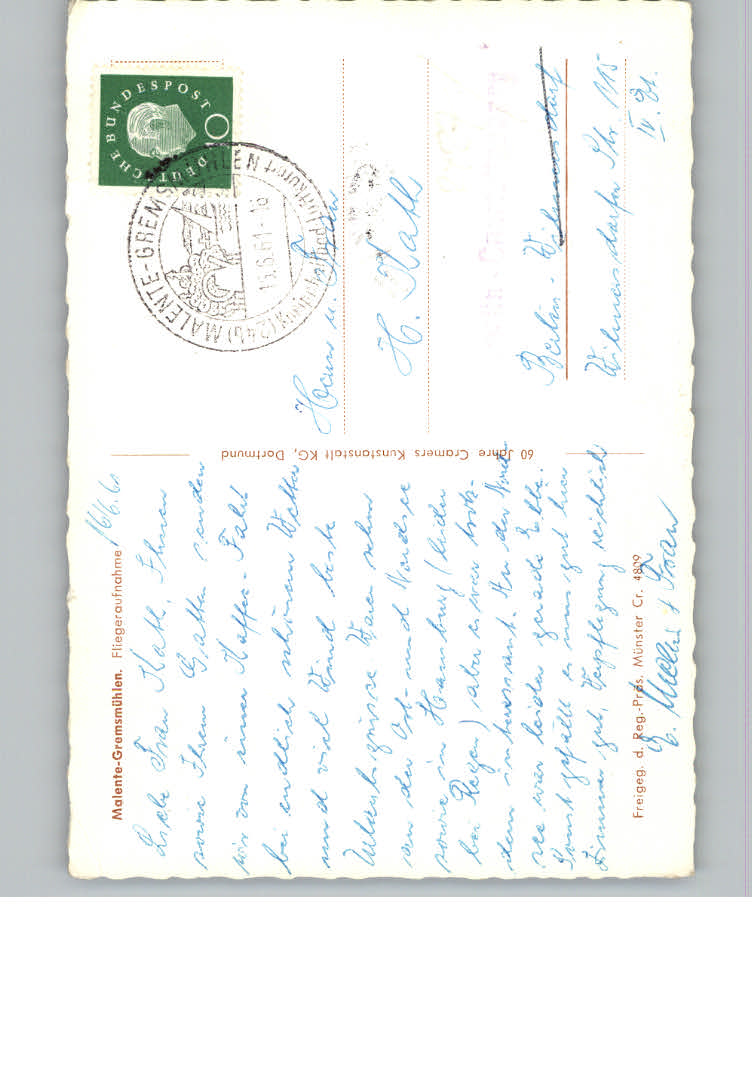 Malente-Gremsmühlen. Fliegeraufnahme
16/6.61
Liebe Frau Kath, Ihnen
sowie Ihrem Gatten senden
wir von einer Kaffee-Fahrt
bei endlich schönem Wetter
und viel Wind beste
Urlaubsgrüsse. Waren schon
an der Ost- und Nordsee
sowie in Hamburg (leider
bei Regen) aber es war trotz-
dem interessant. An der Nord-
see war leider gerade Ebbe.
Sonst gefällt es uns gut hier
Zimmer gut, Verpflegung reichlich
E. + Frau
Freigeg. d. Reg.-Präs. Münster Cr. 4809
60 Jahre Cramers Kunstanstalt KG, Dortmund
DEUTSCHE BUNDESPOST
10
(24b) MALENTE-GREMSMÜHLEN
Kneippheilbad Luftkurort
15.6.61-16
Herrn u. Frau
H. Kath
Berlin - Wilmersdorf
Wilmersdorfer Str. 115
IV. Et.